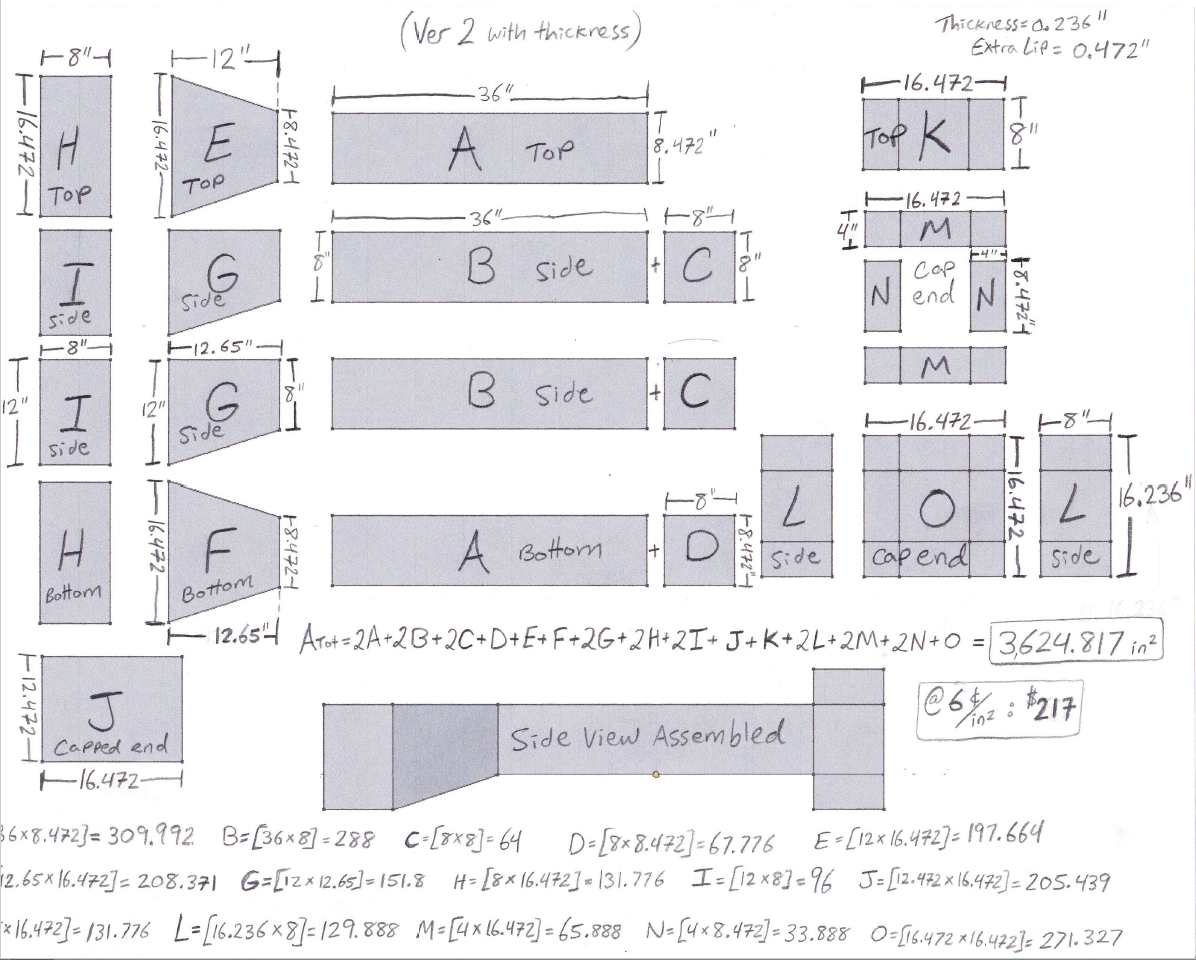 (Ver 2 with thickness)
Thickness=0.236"
Extra Lip= 0.472"
8"
12"
36"
16.472
16.472
H
Top
16.472
E
Top
8.472
A Top
8.472"
Top K
8"
36"
8"
16.472
I
side
G
side
8"
B side
+
C
8"
4"
M
4"
N
Cap
end
N
8.472"
8"
12.65"
M
12"
I
side
12"
G
side
8"
B side
+
C
16.472
8"
H
Bottom
16.472
F
Bottom
8.472
A Bottom
+
8"
D
8.472"
L
side
O
cap end
16.472
L
side
16.236"
12.65"
ATot=2A+2B+2C+D+E+F+2G+2H+2I+J+K+2L+2M+2N+O = 3,624.817 in²
12.472
J
Capped end
16.472
Side View Assembled
@6¢/in² : $217
36×8.472]= 309.992 B=[36×8]=288 C=[8×8]=64 D=[8×8.472]=67.776 E=[12×16.472]=197.664
12.65×16.472]= 208.371 G=[12×12.65]=151.8 H=[8×16.472]=131.776 I=[12×8]=96 J=[12.472×16.472]=205.439
×16.472]=131.776 L=[16.236×8]=129.888 M=[4×16.472]=65.888 N=[4×8.472]=33.888 O=[16.472×16.472]=271.327